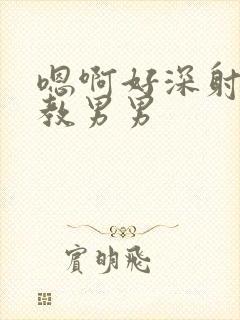 嗯啊好深射
教男男
宾明飛